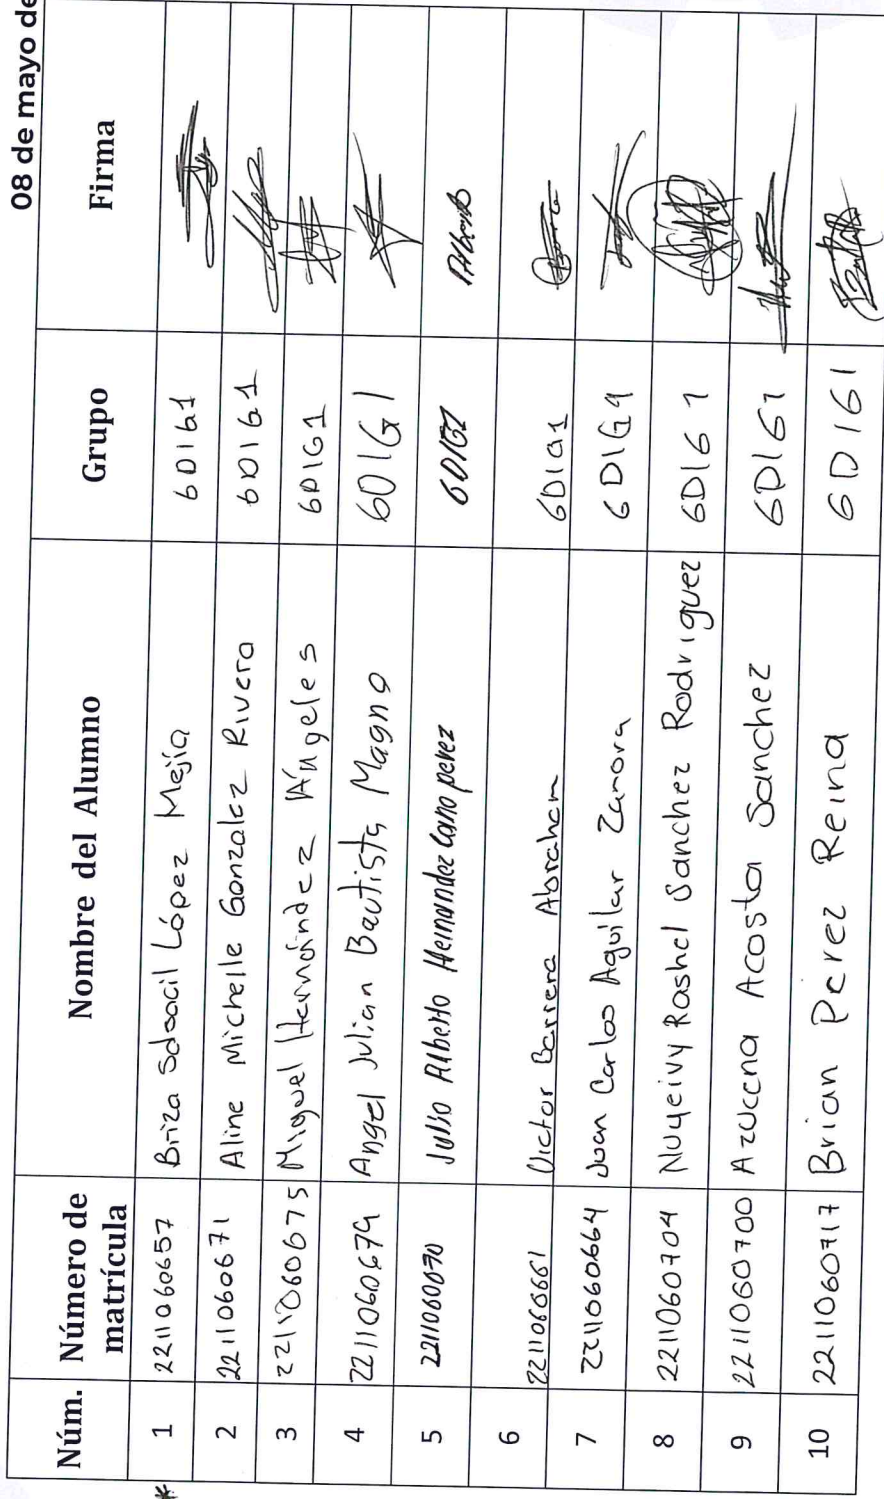 08 de mayo de
Núm. Número de matrícula Nombre del Alumno Grupo Firma
* 1 2211060657 Briza Sdsacil López Mejía 6DIG1
2 2211060671 Aline Michelle Gonzalez Rivera 6DIG1
3 2211060675 Miguel Hernández Ángeles 6DIG1
4 2211060679 Angel Julian Bautista Magno 6DIG1
5 2211060670 Julio Alberto Hernandez Cano perez 6DIG1 Alberto
6 2211060661 Victor Barrera Abraham 6DIG1
7 2211060664 Juan Carlos Aguilar Zamora 6DIG1
8 2211060704 Nuyeivy Rashel Sanchez Rodriguez 6DIG1
9 2211060700 Azucena Acosta Sanchez 6DIG1
10 2211060717 Brian Perez Reina 6DIG1